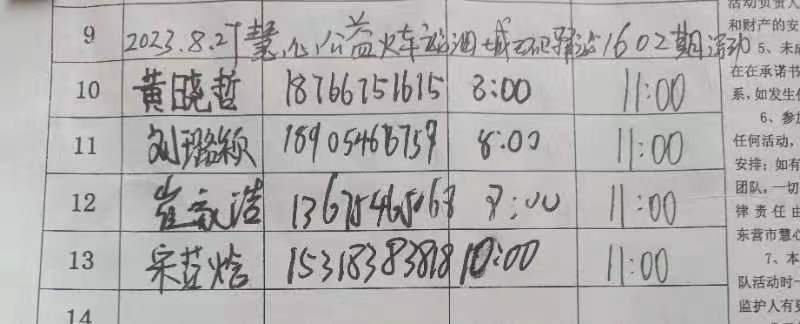 9 2023.8.27慧心公益火车站油城驿站1602期活动
10 黄晓哲 18766751615 8:00 11:00
11 刘璐颖 18905466759 8:00 11:00
12 崔浩 13675465068 8:00 11:00
13 宋苡焓 15318383818 10:00 11:00
14
活动负责人
和财产的安
5、未成
在在承诺书
系，如发生
6、参加
任何活动，
安排；如有
团队，一切
律责任由
东营市慧心
7、本
队活动时一
监护人有